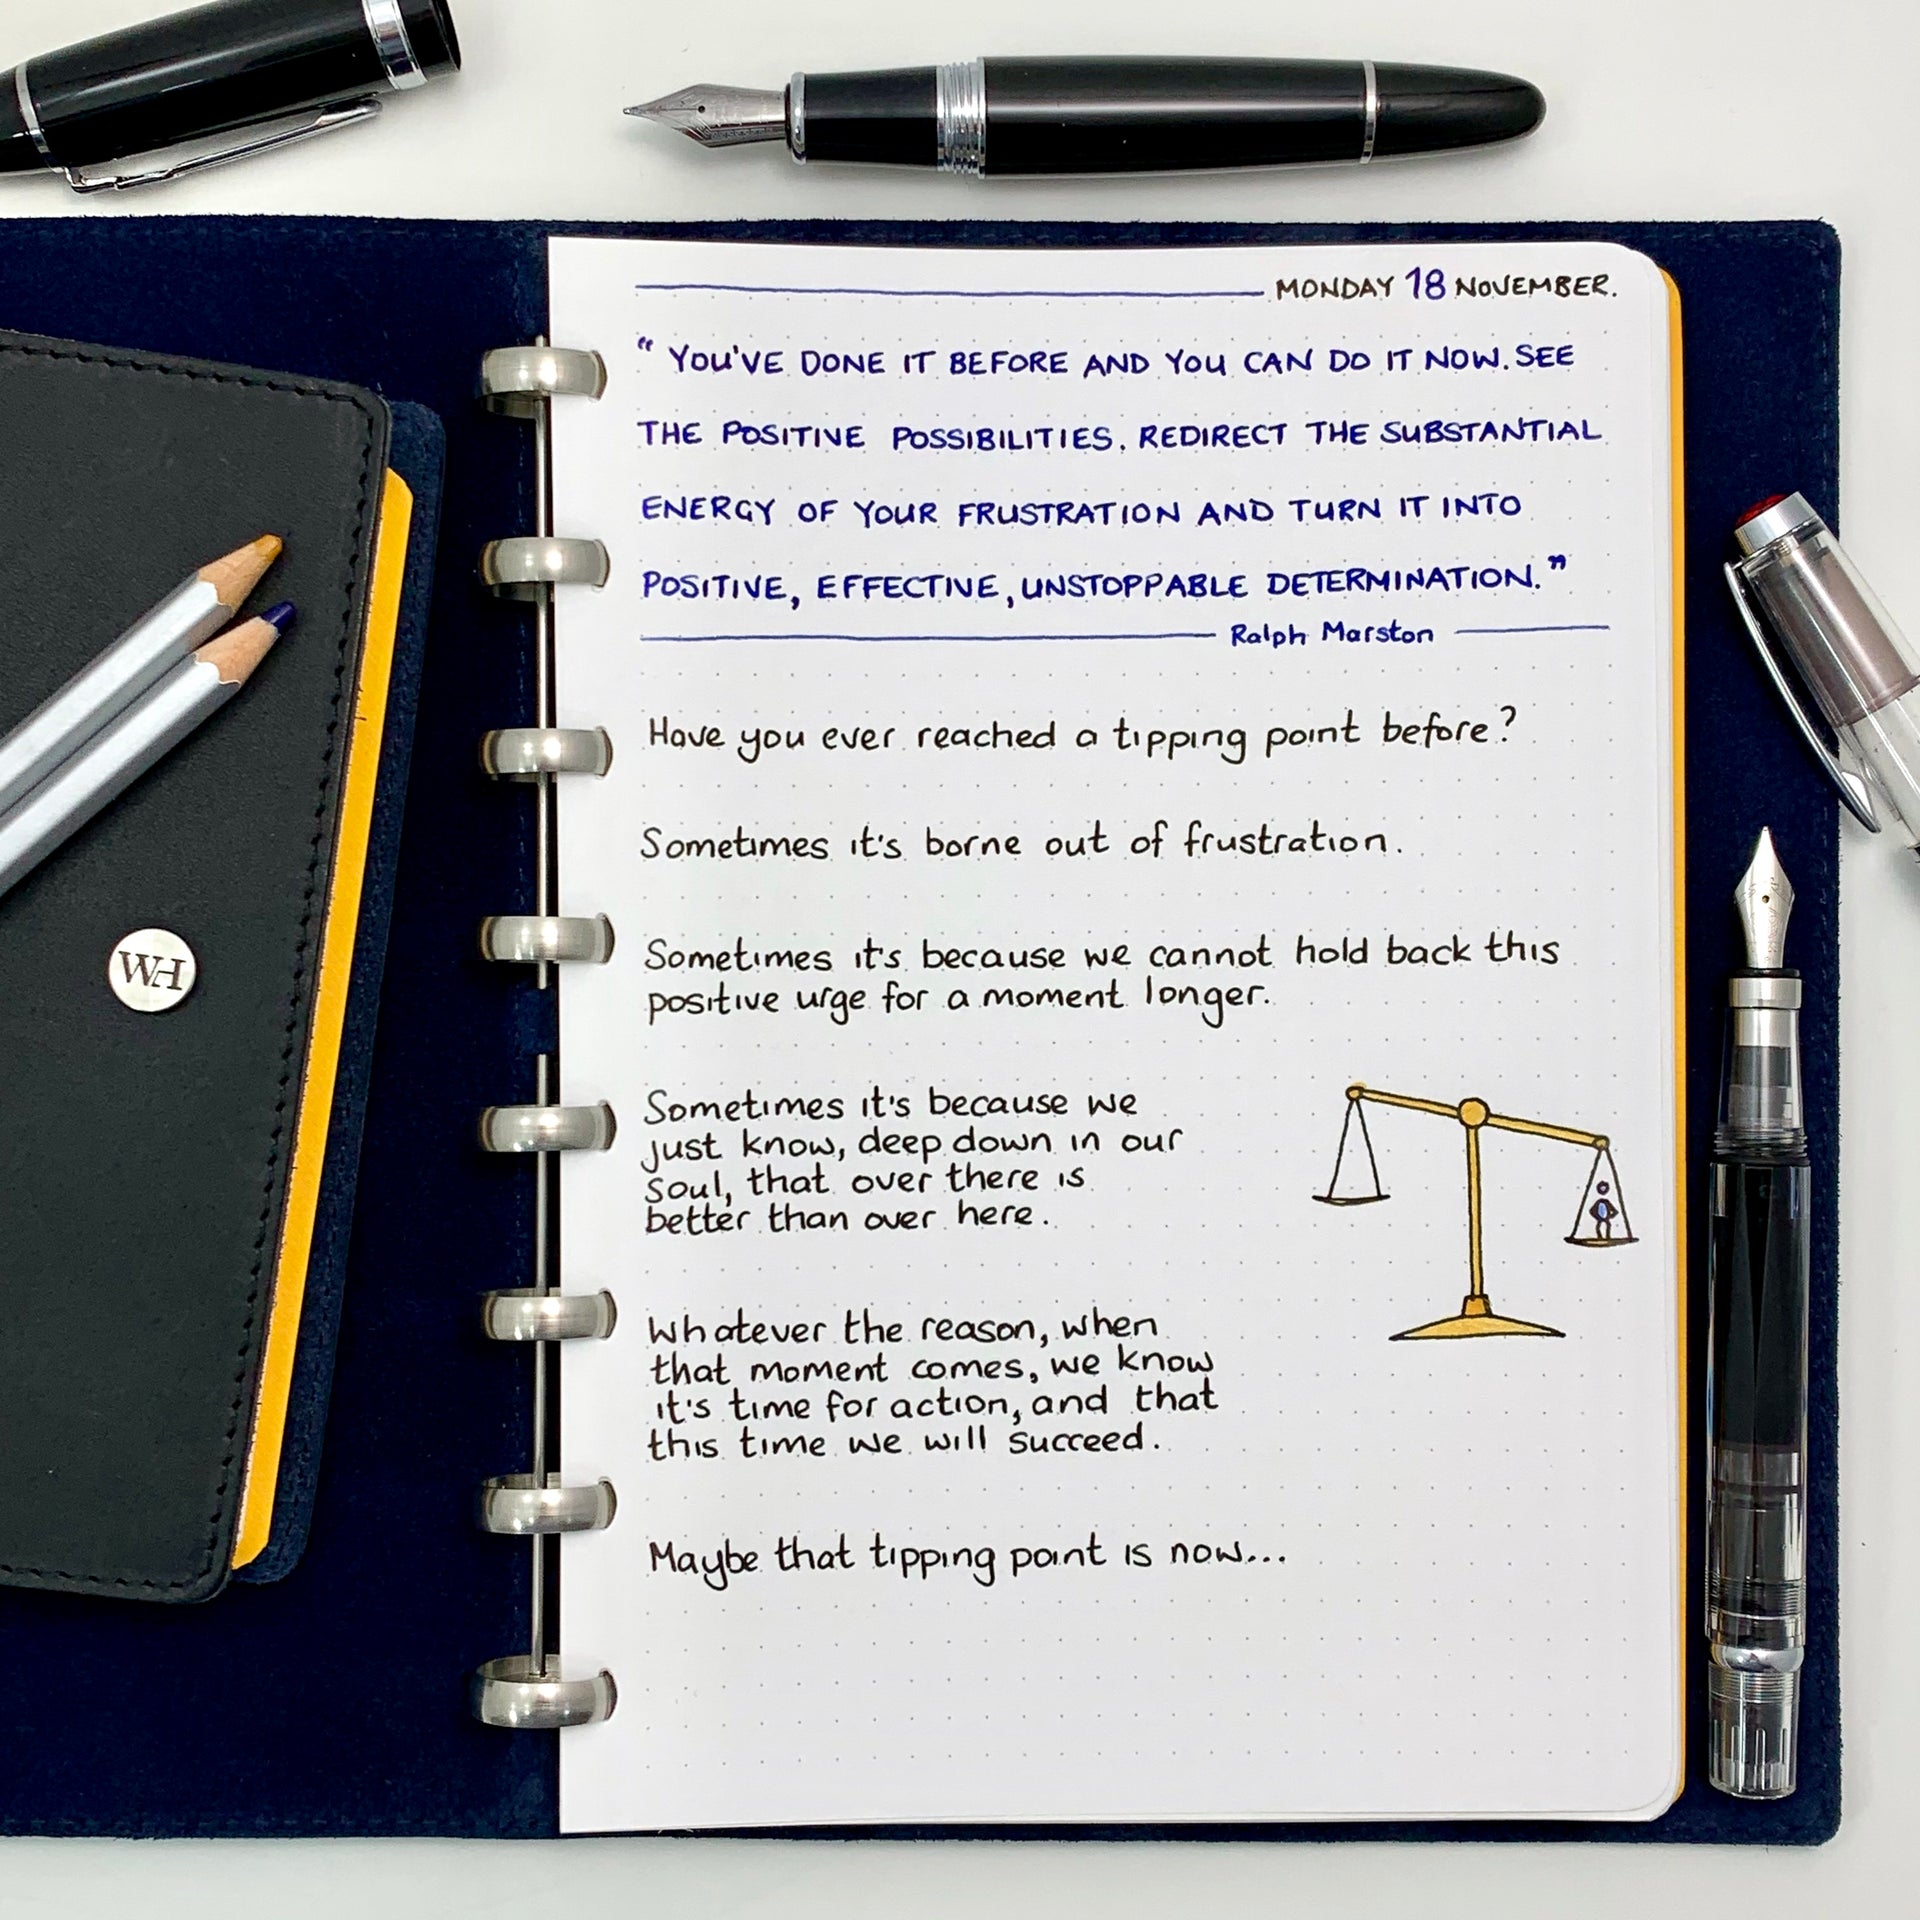 MONDAY 18 NOVEMBER.
" YOU'VE DONE IT BEFORE AND YOU CAN DO IT NOW. SEE
THE POSITIVE POSSIBILITIES. REDIRECT THE SUBSTANTIAL
ENERGY OF YOUR FRUSTRATION AND TURN IT INTO
POSITIVE, EFFECTIVE, UNSTOPPABLE DETERMINATION."
Ralph Marston
Have you ever reached a tipping point before?
Sometimes it's borne out of frustration.
Sometimes it's because we cannot hold back this
positive urge for a moment longer.
Sometimes it's because we
just know, deep down in our
soul, that over there is
better than over here.
Whatever the reason, when
that moment comes, we know
it's time for action, and that
this time we will succeed.
Maybe that tipping point is now...
WH